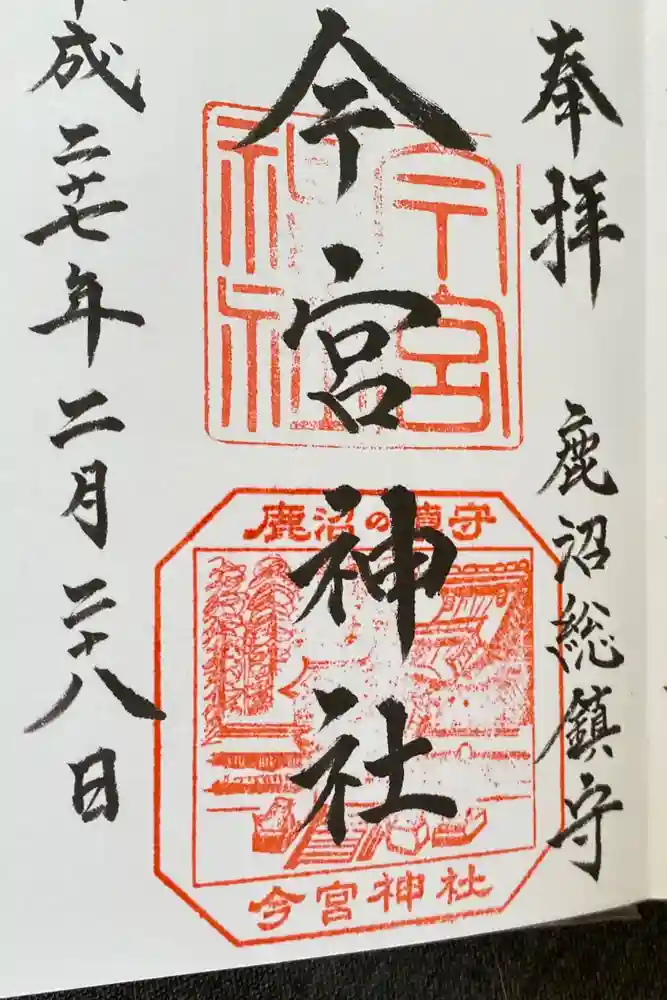 奉拝 鹿沼総鎮守
今宮神社
平成二十七年二月二十八日
今宮神社
鹿沼の鎮守
今宮神社